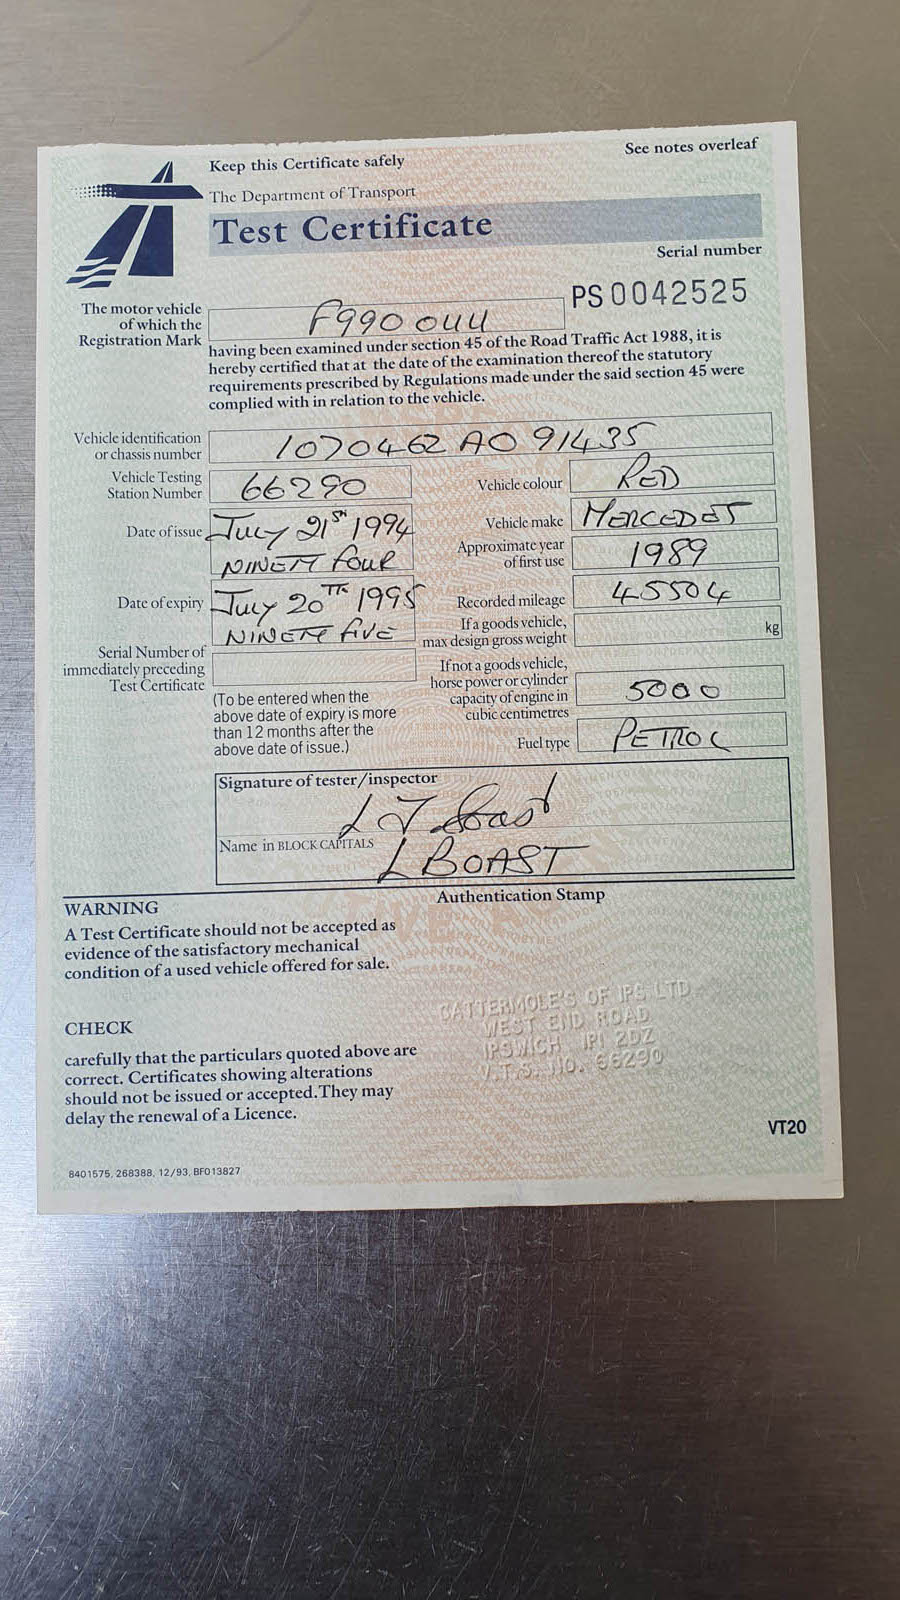 Keep this Certificate safely
See notes overleaf
The Department of Transport
Test Certificate
Serial number
PS 0042525
The motor vehicle
of which the
Registration Mark
F990 OUU
having been examined under section 45 of the Road Traffic Act 1988, it is
hereby certified that at the date of the examination thereof the statutory
requirements prescribed by Regulations made under the said section 45 were
complied with in relation to the vehicle.
Vehicle identification
or chassis number
1070462A091435
Vehicle Testing
Station Number
66290
Vehicle colour
RED
Date of issue
JULY 21ST 1994
NINETY FOUR
Vehicle make
MERCEDES
Approximate year
of first use
1989
Date of expiry
JULY 20TH 1995
NINETY FIVE
Recorded mileage
45504
If a goods vehicle,
max design gross weight
kg
Serial Number of
immediately preceding
Test Certificate
(To be entered when the
above date of expiry is more
than 12 months after the
above date of issue.)
If not a goods vehicle,
horse power or cylinder
capacity of engine in
cubic centimetres
5000
Fuel type
PETROL
Signature of tester/inspector
L J Boast
Name in BLOCK CAPITALS
L BOAST
Authentication Stamp
WARNING
A Test Certificate should not be accepted as
evidence of the satisfactory mechanical
condition of a used vehicle offered for sale.
CATTERMOLE'S OF IPS LTD
WEST END ROAD
IPSWICH IP1 2DZ
V.T.S. No. 66290
CHECK
carefully that the particulars quoted above are
correct. Certificates showing alterations
should not be issued or accepted. They may
delay the renewal of a Licence.
VT20
8401575, 268388, 12/93, BF013827